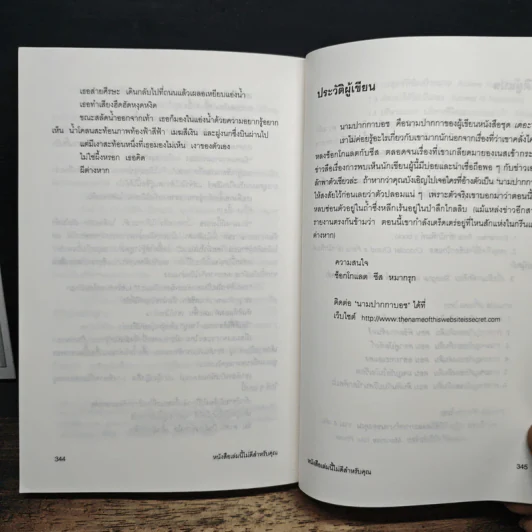 เธอส่ายศีรษะ เดินกลับไปที่ถนนแล้วเผลอเหยียบแอ่งน้ำ
เธอทำเสียงฮึดฮัดหงุดหงิด
ขณะสลัดน้ำออกจากเท้า เธอก็มองในแอ่งน้ำด้วยความอยากรู้อยาก
เห็น น้ำโคลนสะท้อนภาพท้องฟ้าสีฟ้า เมฆสีเงิน และฝูงนกซึ่งบินผ่านไป
แต่มีเงาสะท้อนหนึ่งที่เธอมองไม่เห็น เงาของตัวเอง
ไม่ใช่มิ้งหรอก เธอคิด
มีต่างหาก
344
หนังสือเล่มนี้ไม่ดีสำหรับคุณ
ประวัติผู้เขียน
นามปากกาบอช คือนามปากกาของผู้เขียนหนังสือชุด เดอะ
เราไม่ค่อยรู้อะไรเกี่ยวกับเขามากนักนอกจากเรื่องที่เขาคลั่งไ
หลงช็อกโกแลตกับชีส ตลอดจนเรื่องที่เขาเกลียดมายองเนสเข้ากระ
ข่าวลือเรื่องการพบเห็นนักเขียนผู้นี้มีบ่อยและน่าเชื่อถือพอ ๆ กับข่าวเ
ลักพาตัวเชียวล่ะ ถ้าหากว่าคุณบังเอิญไปเจอใครที่อ้างตัวเป็น "นามปากก
ให้สงสัยไว้ก่อนเลยว่าตัวปลอมแน่ ๆ เพราะตัวจริงเขาบอกมาว่าตอนนี้
หลบซ่อนตัวอยู่ในถ้ำซึ่งหลีกเร้นอยู่ในป่าลึกไกลลิบ (แม้แหล่งข่าวอีกส
รายงานตรงกันข้ามว่า ตอนนี้เขากำลังเตร็ดเตร่อยู่ที่ไหนสักแห่งในกรีนแ
ต่างหาก)
ความสนใจ
ช็อกโกแลต ชีส หมากรุก
ติดต่อ "นามปากกาบอช" ได้ที่
เว็บไซต์ http://www.thenameofthiswebsiteissecret.com
หนังสือเล่มนี้ไม่ดีสำหรับคุณ
345